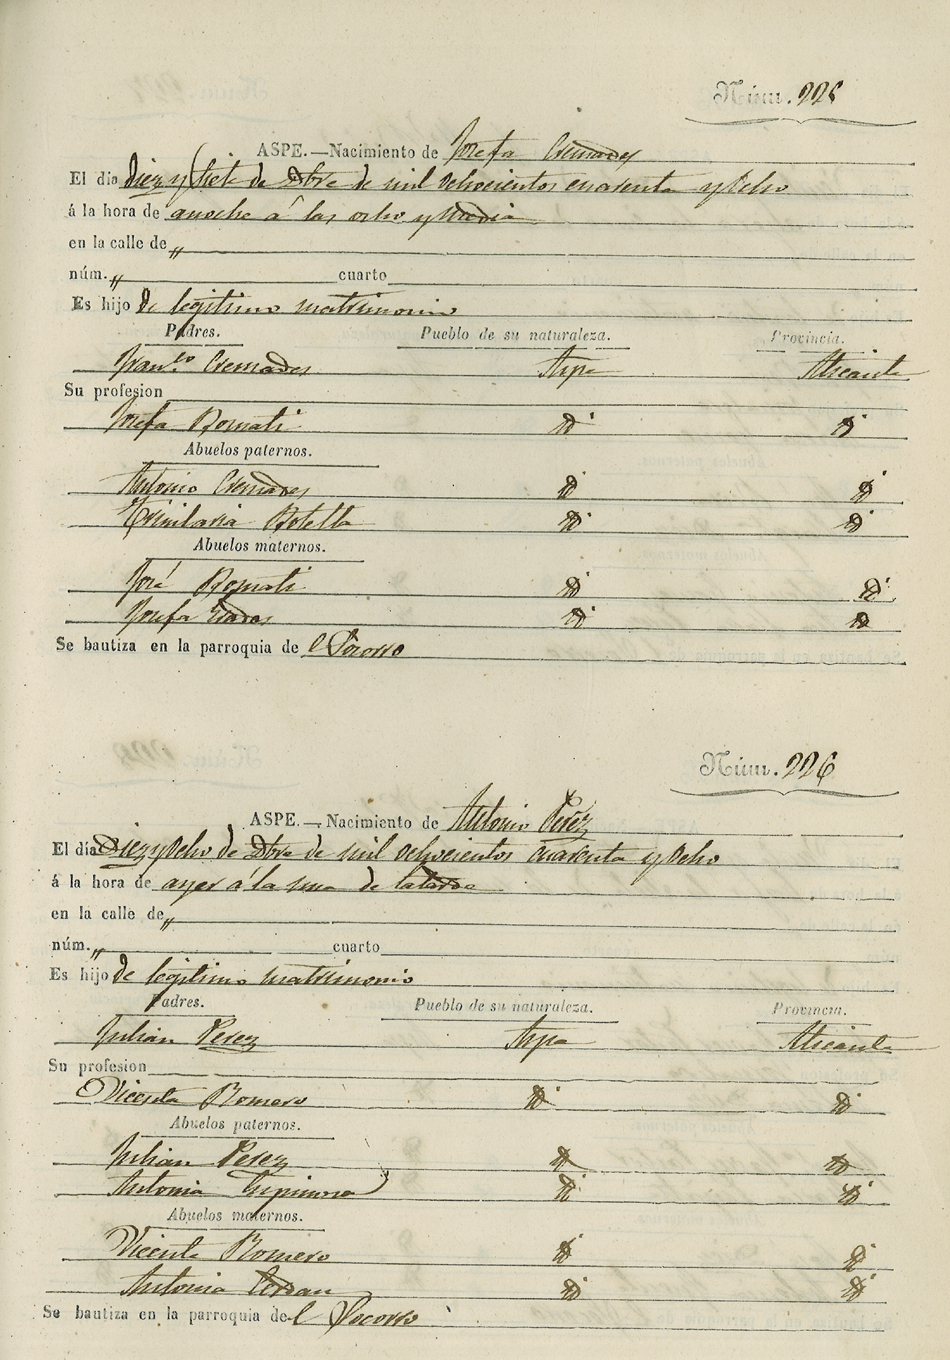 Núm. 225
ASPE.—Nacimiento de Josefa Cremades
El dia diez y siete de Dbre de mil ochocientos cuarenta y ocho
á la hora de anoche á las ocho y media
en la calle de „
núm. „ cuarto
Es hijo de legitimo matrimonio
Padres. Pueblo de su naturaleza. Provincia.
Franco. Cremades Aspe Alicante
Su profesion
Josefa Bernati id id
Abuelos paternos.
Antonio Cremades id id
Botella id id
Abuelos maternos.
José id id
Josefa id id
Se bautiza en la parroquia de l Socorro
Núm. 226
ASPE.—Nacimiento de Antonio Perez
El dia Diez y ocho de Dbre de mil ochocientos cuarenta y ocho
á la hora de ayer á la una de la tarde
en la calle de „
núm. „ cuarto
Es hijo de legitimo matrimonio
Padres. Pueblo de su naturaleza. Provincia.
Julian Perez Aspe Alicante
Su profesion
Vicenta Romero id id
Abuelos paternos.
Julian Perez id id
Antonia Espinosa id id
Abuelos maternos.
Vicente Romero id id
Antonia Cerdan id id
Se bautiza en la parroquia de l Socorro